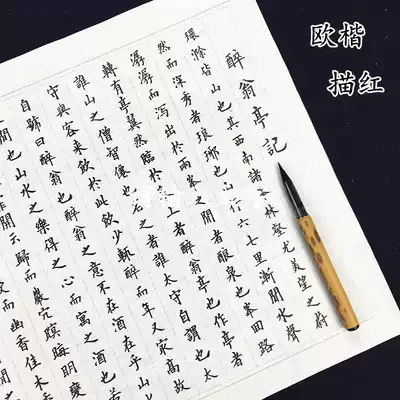 欧楷
描红
醉翁亭記
環滁皆山也其西南諸峯林壑尤美望之蔚
然而深秀者琅琊也山行六七里漸聞水聲
潺潺而瀉出於兩峯之間者釀泉也峯回路
轉有亭翼然臨於泉上者醉翁亭也作亭者
誰山之僧智僊也名之者誰太守自謂也太
守與客來飲於此飲少輒醉而年又最高故
自號曰醉翁也醉翁之意不在酒在乎山
間也山水之樂得之心而寓之酒也若
開雲歸而巖穴暝晦明變
而幽香佳木